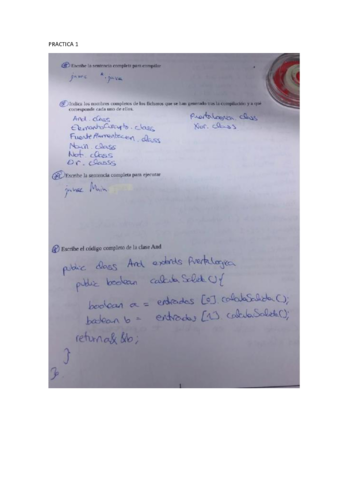 PRACTICA 1
Escribe la sentencia completa para compilar
javac *.java
Indica los nombres completos de los ficheros que se han generado con la compilación y a qué
corresponde cada uno de ellos.
And.class
PuertaLogica.class
ElementoCircuito.class
Xor.class
FuenteAlimentacion.class
Main.class
Not.class
Or.class
Escribe la sentencia completa para ejecutar
java Main
Escribe el código completo de la clase And
public class And extends PuertaLogica
public boolean calculaSalida(){
boolean a = entradas [0] calculaSalida();
boolean b = entradas [1] calculaSalida();
return a && b;
}
}